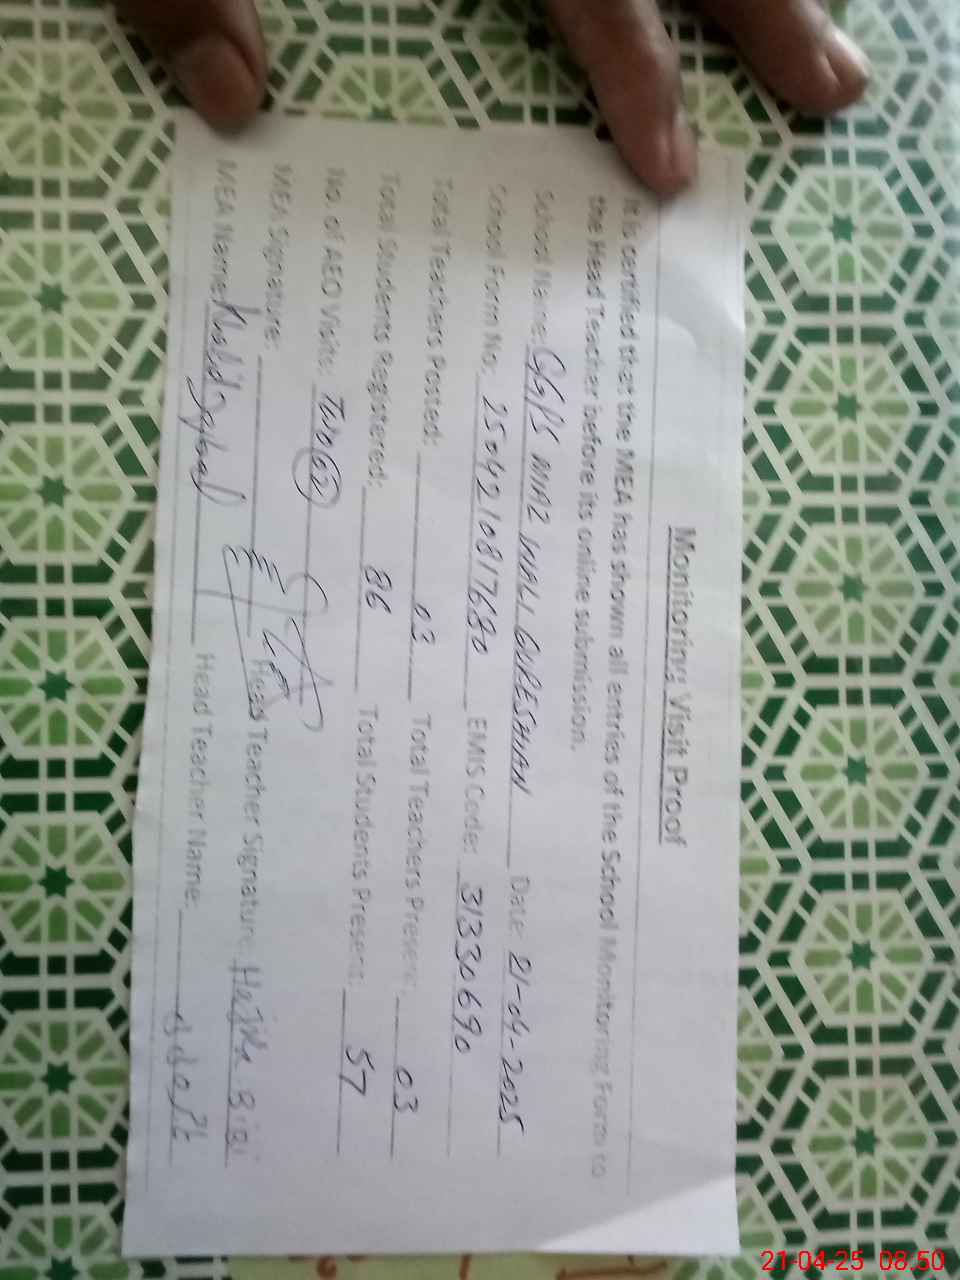 Monitoring Visit Proof
It is certified that the MEA has shown all entries of the School Monitoring Form to
the Head Teacher before its online submission.
School Name: GGPS MIAZ WALI QURESHIAN Date: 21-04-2025
School Form No: 2504210817690 EMIS Code: 31330690
Total Teachers Posted: 03 Total Teachers Present: 03
Total Students Registered: 86 Total Students Present: 57
No. of AEO Visits: Two (2)
MEA Signature: Head Teacher Signature: Hajra Bibi
MEA Name: Khalid Iqbal Head Teacher Name:
21-04-25 08:50